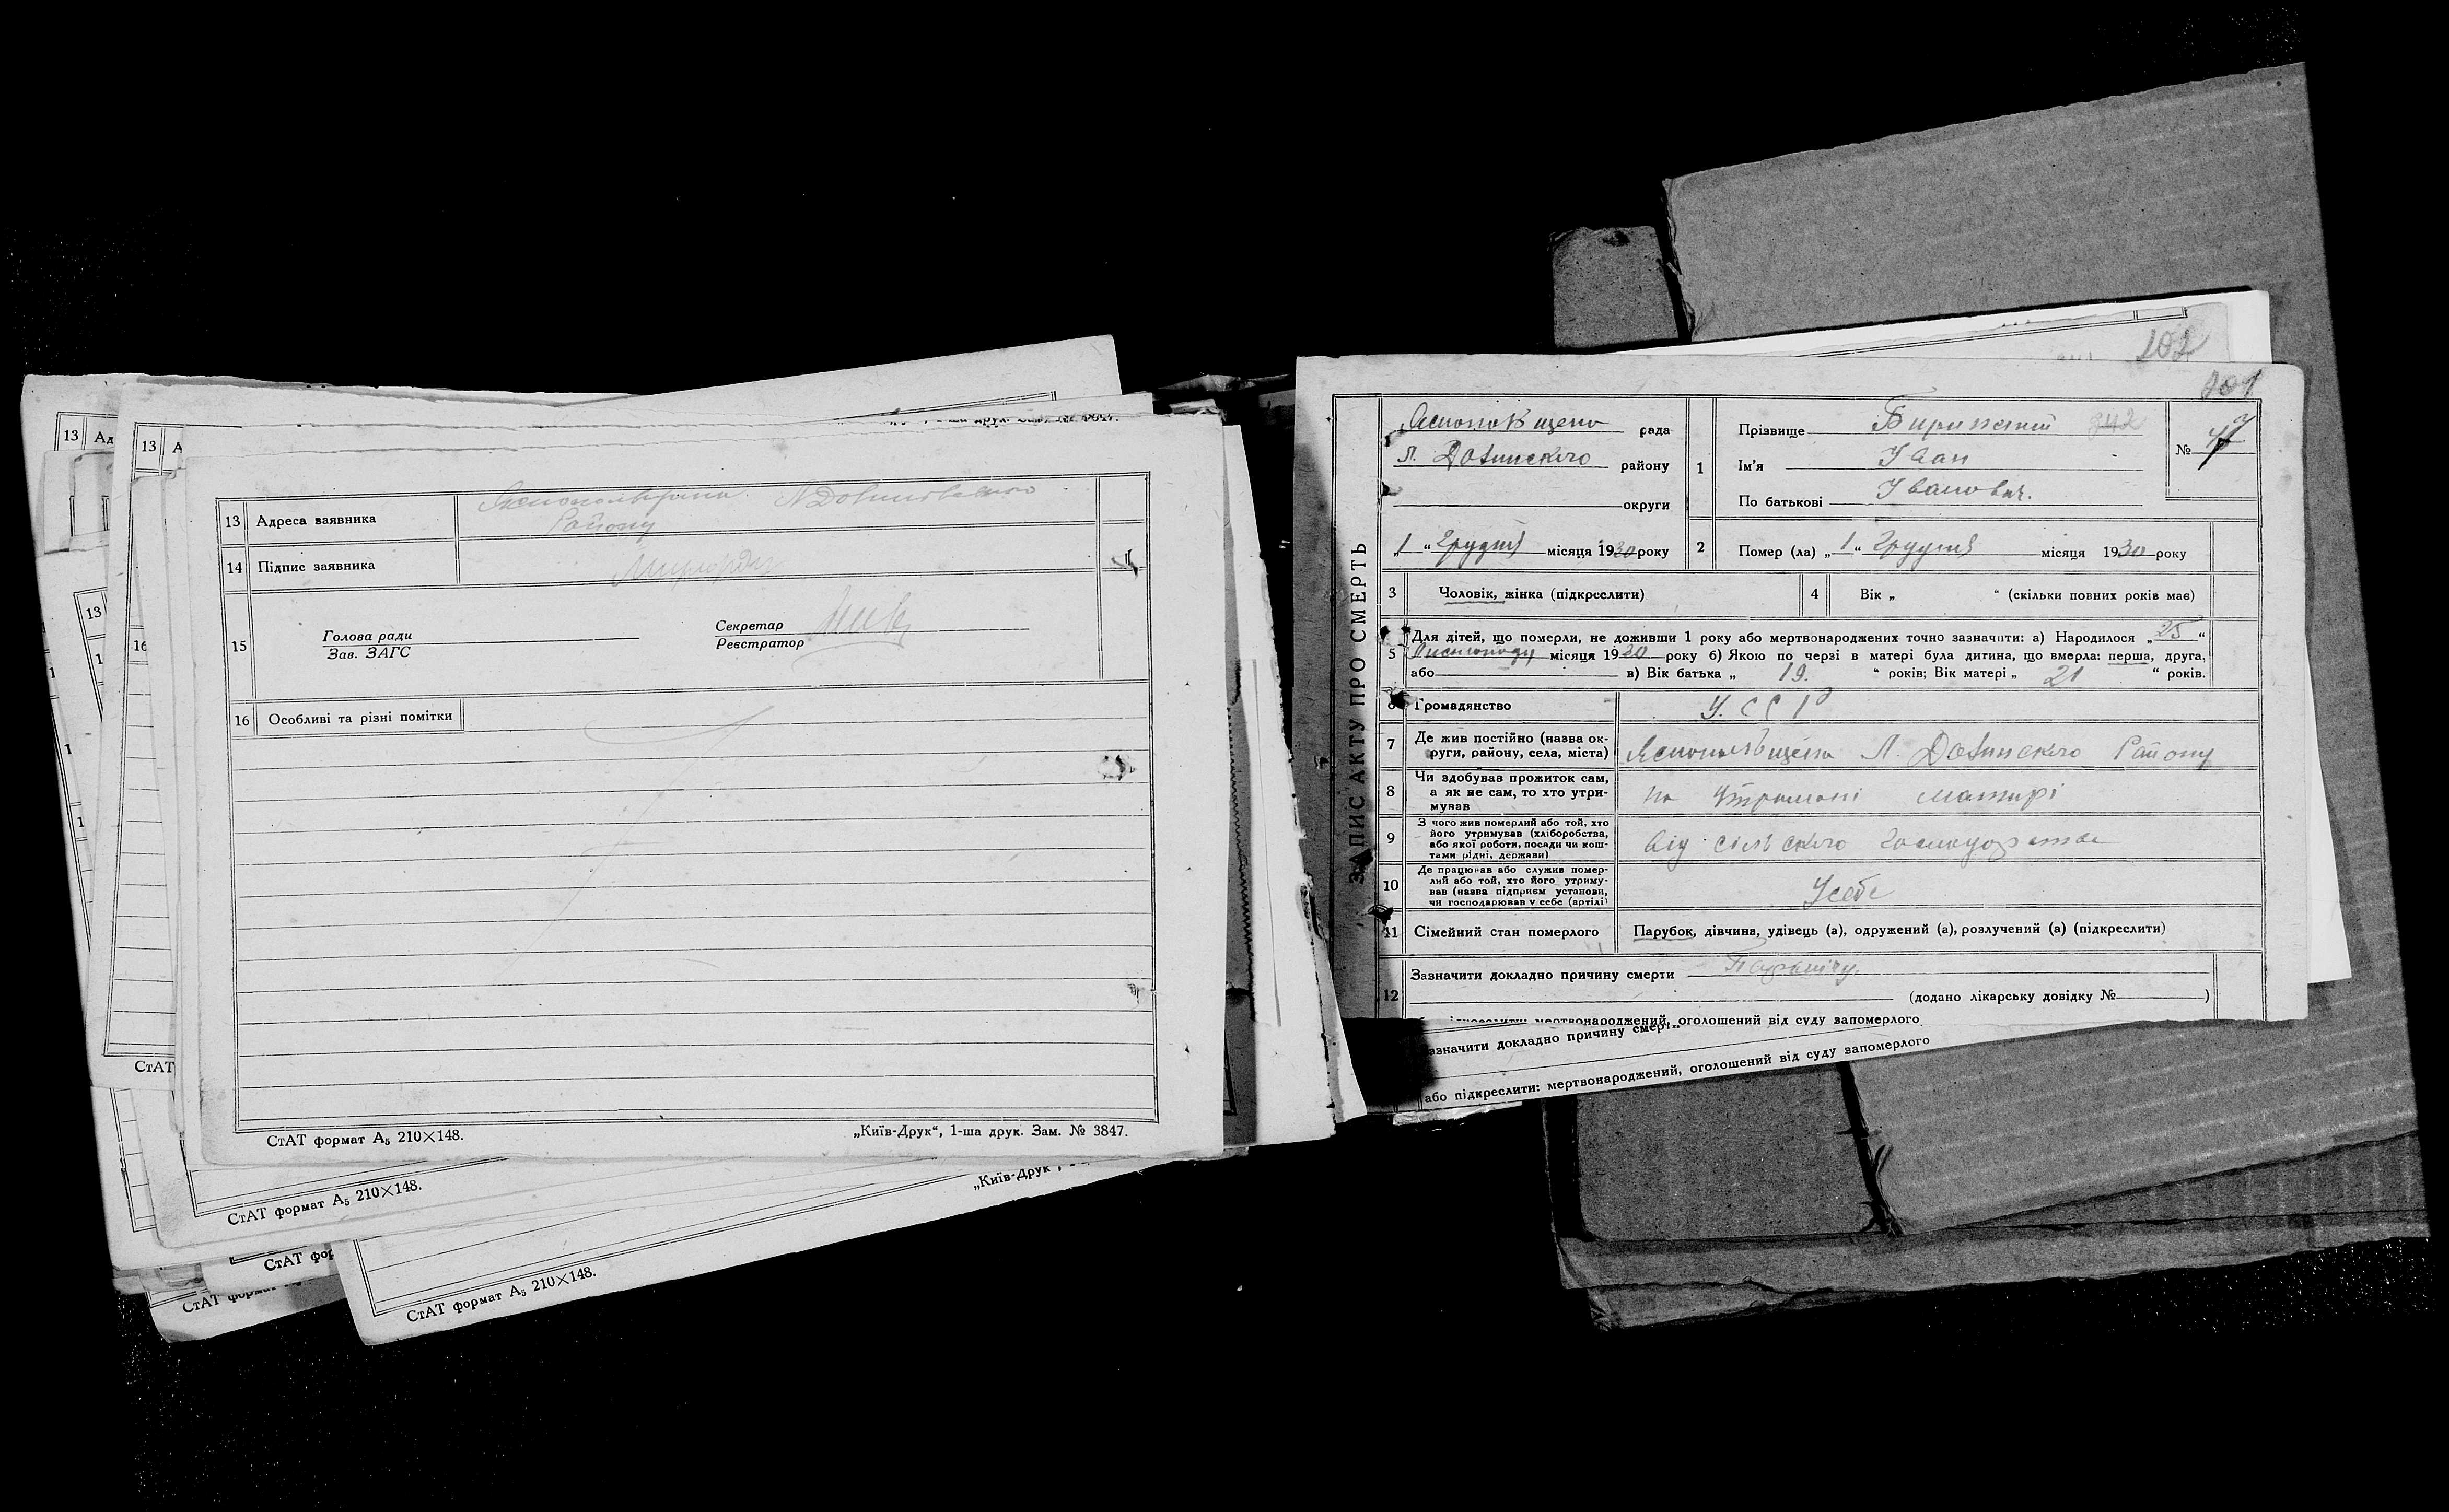 13 Ад
13 А
13
16
1
СтАТ
13 Адреса заявника Району
14 Підпис заявника
15 Голова ради
Зав. ЗАГС
Секретар
Реєстратор
16 Особливі та різні помітки
СтАТ формат А₅ 210×148.
„Київ-Друк“, 1-ша друк. Зам. № 3847.
СтАТ формат А₅ 210×148.
„Київ-Друк
СтАТ фор
СтАТ форма
СтАТ формат А₅ 210×148.
202
201
ЗАПИС АКТУ ПРО СМЕРТЬ
рада
Л. району
округи
„1“ Грудня місяця 1930 року
1 Прізвище 342
Ім'я Іван
По батькові Іванович.
№
2 Помер (ла) „1“ Грудня місяця 1930 року
3 Чоловік, жінка (підкреслити)
4 Вік „ “ (скільки повних років має)
5 Для дітей, що померли, не доживши 1 року або мертвонароджених точно зазначити: а) Народилося „25“
Листопаду місяця 1930 року б) Якою по черзі в матері була дитина, що вмерла: перша, друга,
або в) Вік батька „ 19. “ років; Вік матері „ 21 “ років.
6 Громадянство У.ССР
7 Де жив постійно (назва округи, району, села, міста) Л. Району
8 Чи здобував прожиток сам, а як не сам, то хто утримував на утримані матирі
9 З чого жив померлий або той, хто його утримував (хліборобства, або якої роботи, посади чи коштами рідні, держави) від сільского господарства
10 Де працював або служив померлий або той, хто його утримував (назва підприєм установи, чи господарював у себе (артілі) Усебе
11 Сімейний стан померлого Парубок, дівчина, удівець (а), одружений (а), розлучений (а) (підкреслити)
12 Зазначити докладно причину смерти
(додано лікарську довідку № )
мертвонароджений, оголошений від суду запомерлого
азначити докладно причину смерт
або підкреслити: мертвонароджений, оголошений від суду запомерлого